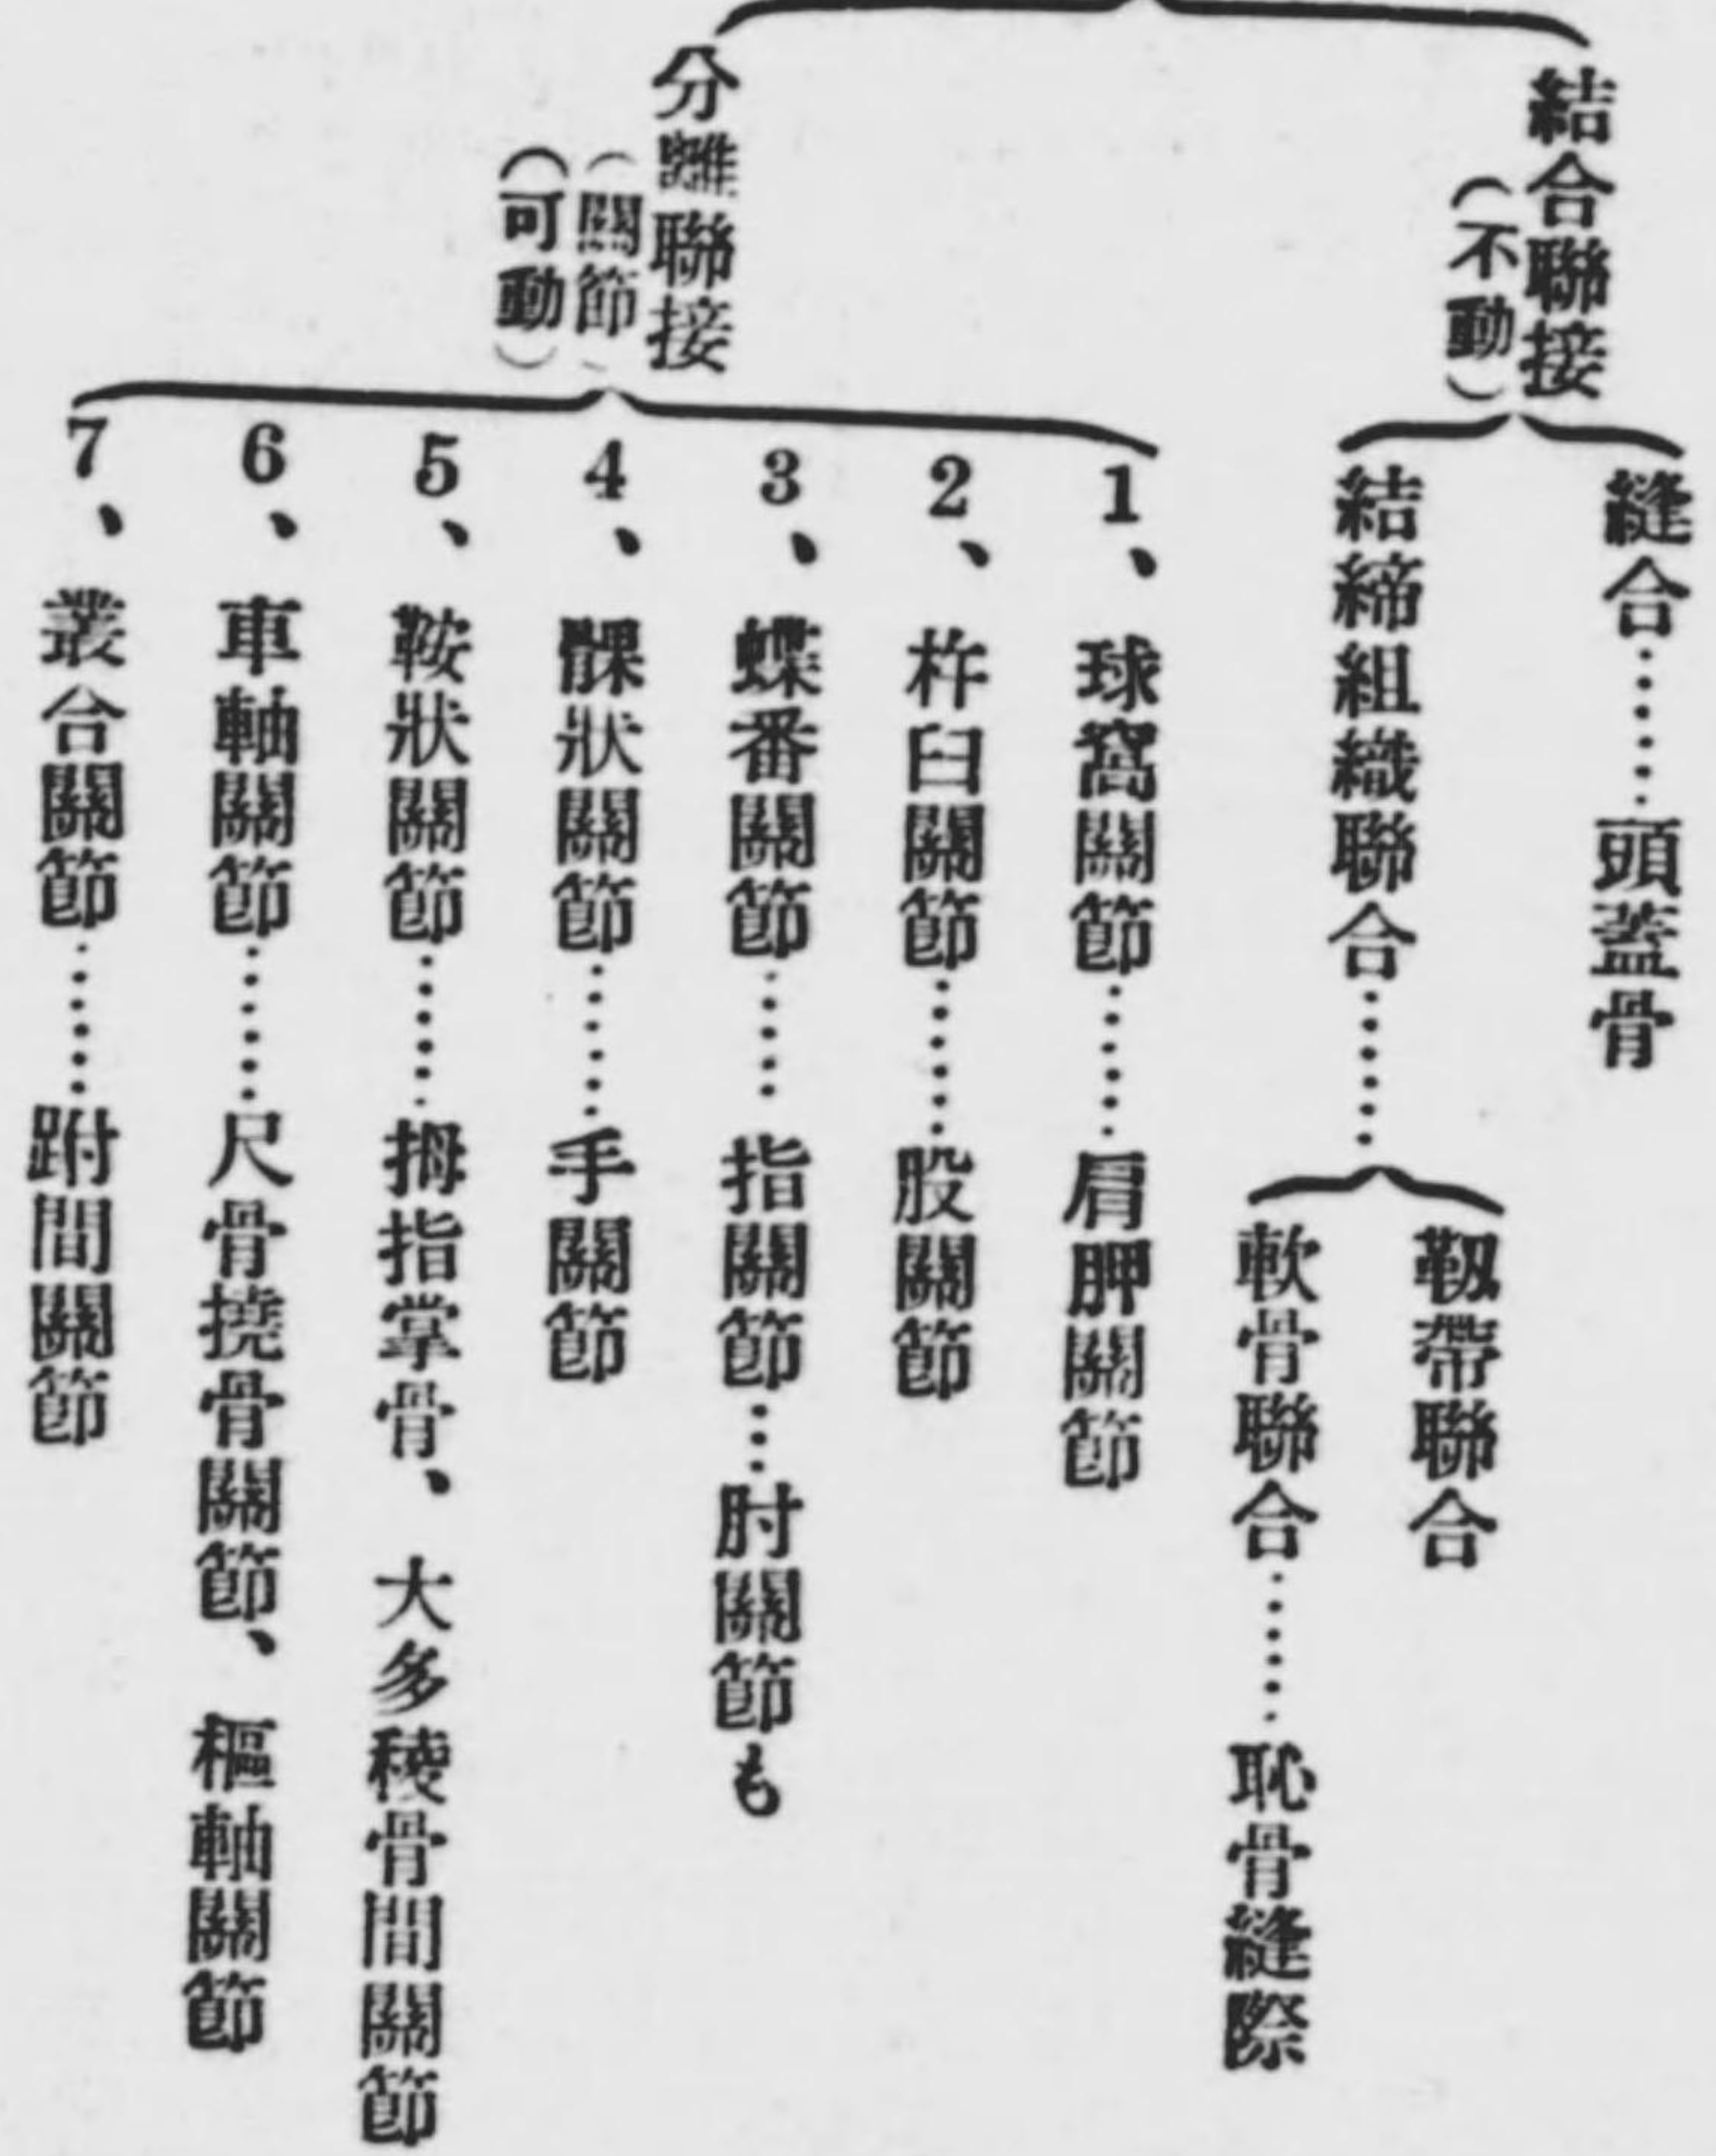 結合聯接
（不動）
縫合……頭蓋骨
結締組織聯合……
靱帶聯合
軟骨聯合……恥骨縫際
分離聯接
（關節）
（可動）
1、球窩關節……肩胛關節
2、杵臼關節……股關節
3、蝶番關節……指關節…肘關節も
4、髁狀關節……手關節
5、鞍狀關節……拇指掌骨、大多稜骨間關節
6、車軸關節……尺骨撓骨關節、樞軸關節
7、叢合關節……跗間關節